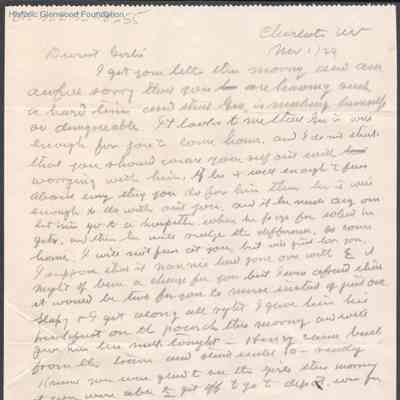 Historic Glenwood Foundation
Charleston WV
Nov. 1/24
Dearest Girls
I got your letter this morning and am
awful sorry that you are having such
a hard time and that Geo. is making himself
so disagreeable It looks to me that Geo is well
enough for you to come home, and I do not think
that you should wear your self out with
worrying with him, If he is well enough to fuss
about any thing you do for him then he is well
enough to do with out you, and if he needs any one
let him go to a hospital where he pays for what he
gets, and then he will realize the difference, so come
home. I will not fuss at you, but will just love you,
I suppose that if Nannie had gone over with E it
might of been a change for you but I was afraid then
it would be two for you to nurse instead of just one
and I get along all right I gave him his
breakfast on the porch this morning and will
give him his milk tonight - Henry came back
from the town and
Know you were glad to see the girls this morning
if you were able to get off to go to depot, was